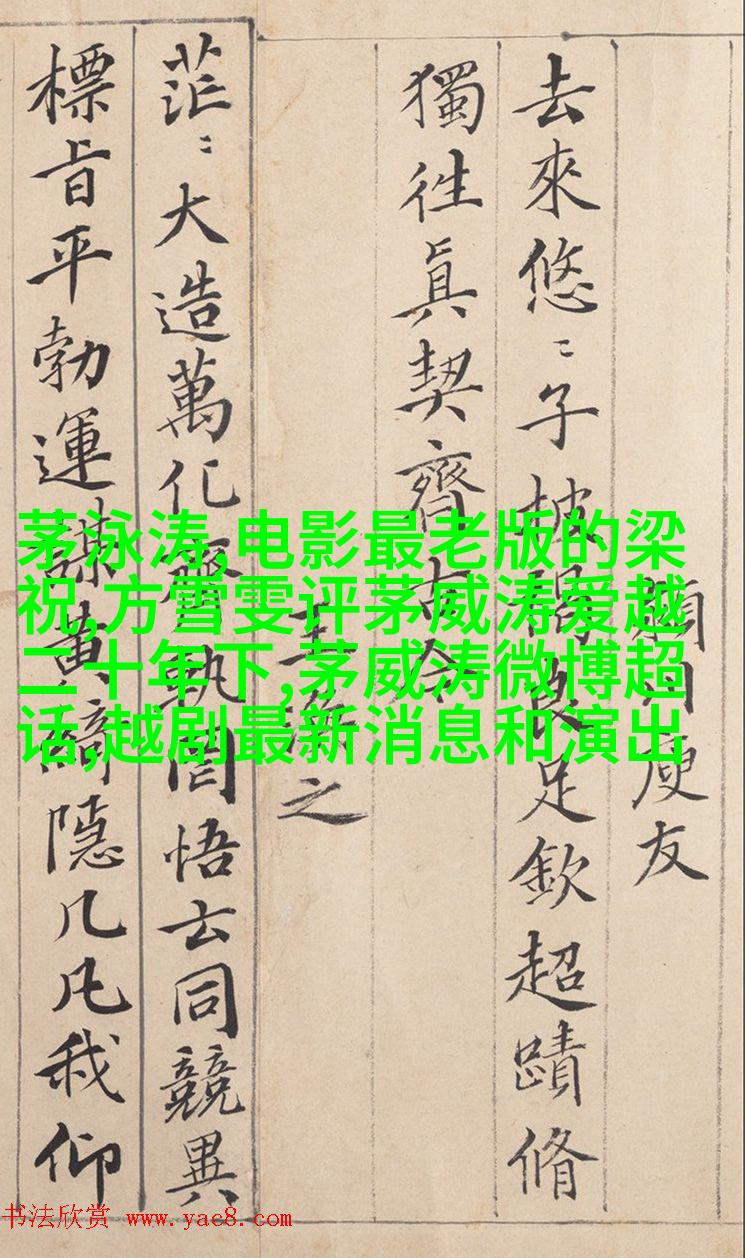 去來悠〻子披褐良足欽超蹟脩
獨往眞契齊古今
王渙之
川庾友
茫〻大造萬化齊軌罔悟玄同競異
標旨平勃運謀黃綺隱几凡我仰
茅泳涛,电影最老版的梁
祝,方雪雯评茅威涛爱越
二十年下,茅威涛微博超
话,越剧最新消息和演出
书法欣赏 www.yac8.com